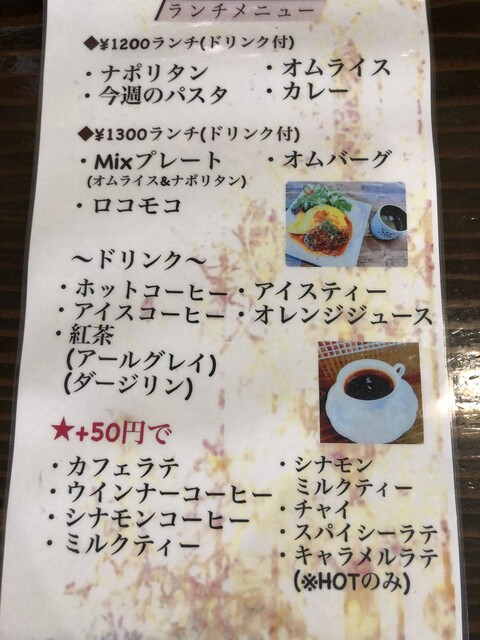 ランチメニュー
◆¥1200ランチ(ドリンク付)
・ナポリタン ・オムライス
・今週のパスタ ・カレー
◆¥1300ランチ(ドリンク付)
・Mixプレート ・オムバーグ
(オムライス&ナポリタン)
・ロコモコ
〜ドリンク〜
・ホットコーヒー ・アイスティー
・アイスコーヒー ・オレンジジュース
・紅茶
(アールグレイ)
(ダージリン)
★+50円で
・カフェラテ
・ウインナーコーヒー
・シナモンコーヒー
・ミルクティー
・シナモン
ミルクティー
・チャイ
・スパイシーラテ
・キャラメルラテ
(※HOTのみ)